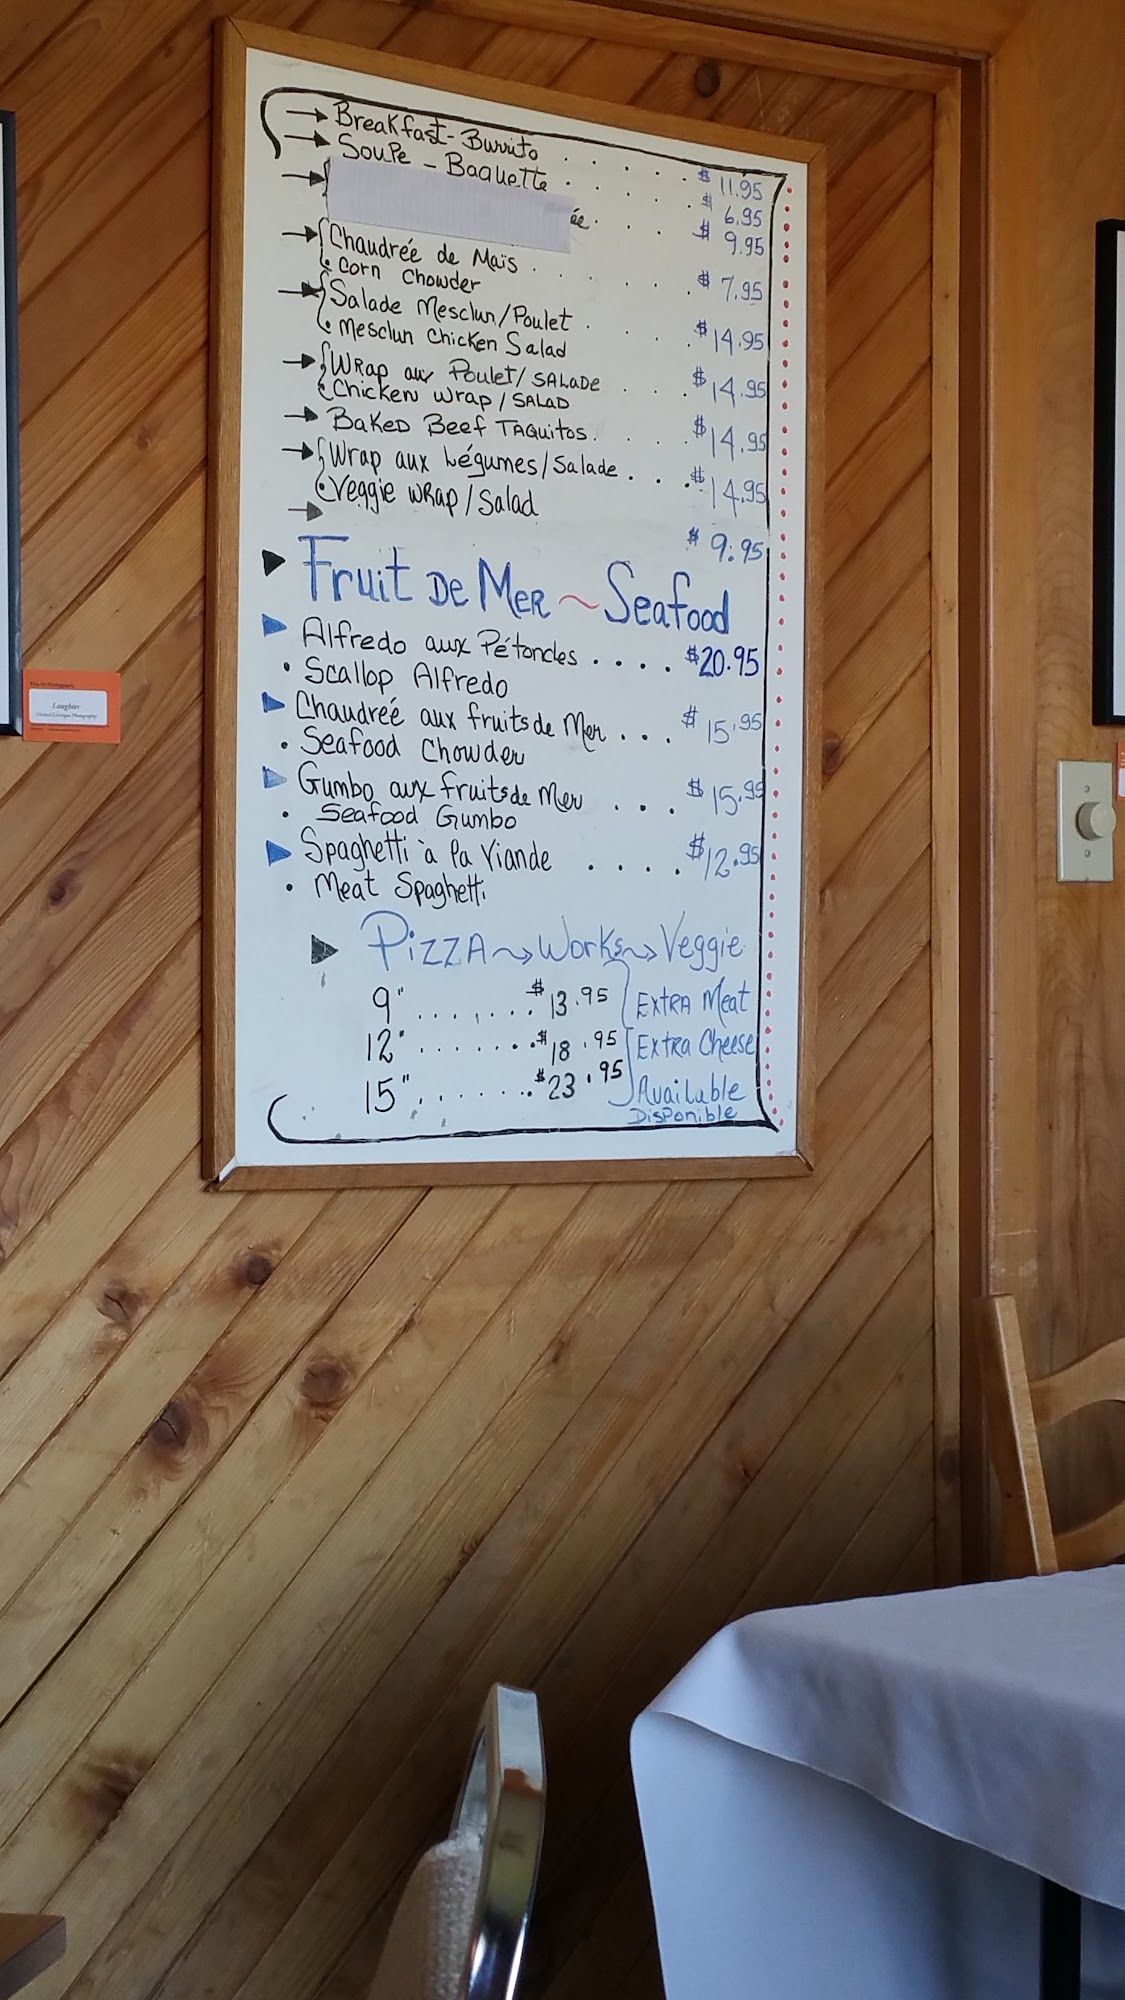 Breakfast-Burrito . . . . . $ 11.95
Soupe - Baguette . . . . . $ 6.95
ée . . . . $ 9.95
Chaudrée de Maïs . . . . . . $ 7.95
• Corn Chowder
Salade Mesclun/Poulet . . . . $14.95
• Mesclun Chicken Salad
Wrap aux Poulet/SALADE . . . $14.95
• Chicken Wrap/SALAD
Baked Beef Taquitos. . . . $14.95
Wrap aux Légumes/Salade . . . . $14.95
• Veggie Wrap/Salad
$ 9.95
Fruit De Mer ~ Seafood
Alfredo aux Pétoncles . . . . $20.95
• Scallop Alfredo
Chaudréé aux fruits de Mer . . . $15.95
• Seafood Chowder
Gumbo aux fruits de Mer . . . $15.95
• Seafood Gumbo
Spaghetti à la Viande . . . . $12.95
• Meat Spaghetti
Pizza → Works → Veggie
9" . . . . . . . $13.95
Extra Meat
12" . . . . . . . $18.95
Extra Cheese
15" . . . . . . . $23.95
Available
Disponible
Laughter